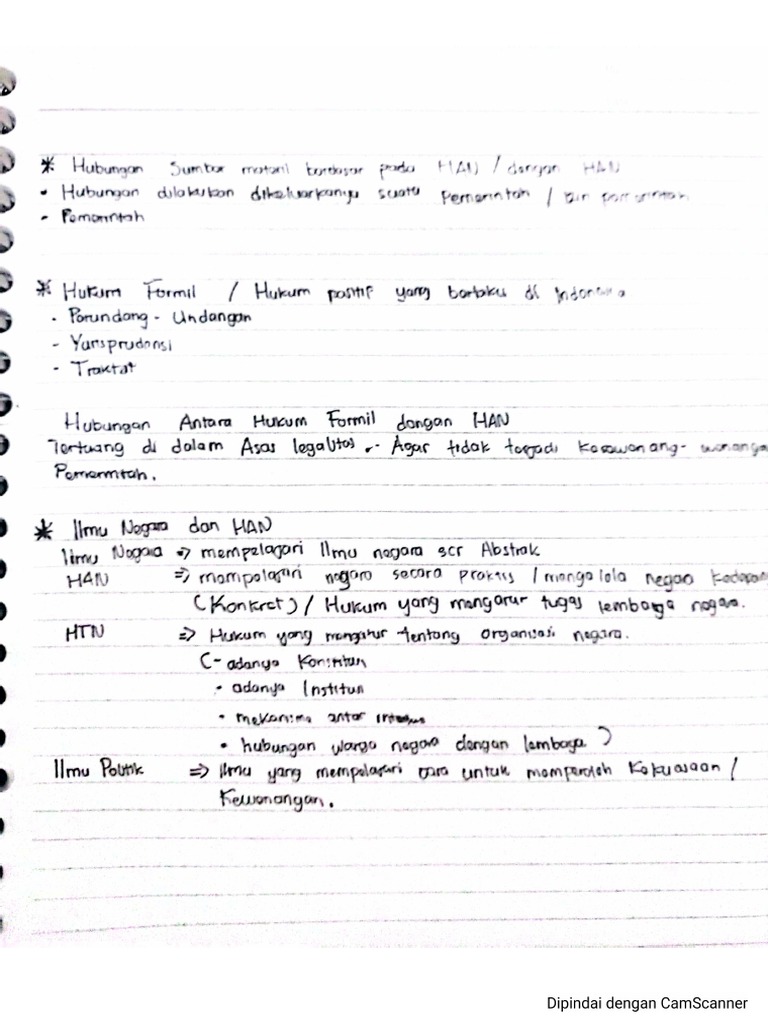 * Hubungan Sumber materil berdasar pada HAN / dengan HAN
• Hubungan dilakukan dikeluarkanya suatu Pemerintah /
- Pemerintah
* Hukum Formil / Hukum positif yang berlaku di Indonesia
- Perundang - Undangan
- Yurisprudensi
- Traktat
Hubungan Antara Hukum Formil dengan HAN
Tertuang di dalam Asas legalitas. - Agar tidak terjadi kesewenang-
Pemerintah.
* Ilmu Negara dan HAN
Ilmu Negara => mempelajari Ilmu negara scr Abstrak
HAN => mempelajari negara secara praktis / mengelola negara
(Konkret) / Hukum yang mengatur tugas lembaga negara.
HTN => Hukum yang mengatur tentang organisasi negara.
(- adanya Konstitusi
• adanya Institusi
• mekanisme antar
• hubungan warga negara dengan lembaga )
Ilmu Politik => Ilmu yang mempelajari cara untuk memperoleh Kekuasaan /
Kewenangan.
Dipindai dengan CamScanner